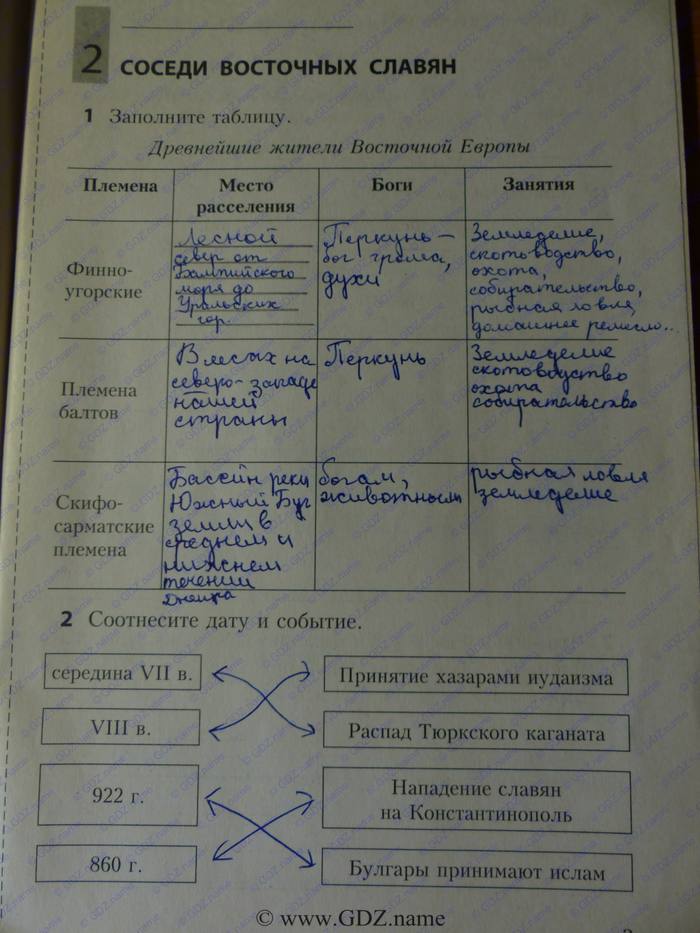 2 СОСЕДИ ВОСТОЧНЫХ СЛАВЯН
1 Заполните таблицу.
Древнейшие жители Восточной Европы
Племена
Место
расселения
Боги
Занятия
Финно-
угорские
Лесной
север от
Балтийского
моря до
Уральских
гор.
Перкунь –
бог грома,
духи
Земледелие,
скотоводство,
охота,
собирательство,
рыбная ловля,
домашнее ремесло..
Племена
балтов
В лесах на
северо-западе
нашей
страны
Перкунь
Земледелие
скотоводство
охота
собирательство
Скифо-
сарматские
племена
Бассейн реки
Южный Буг
земли в
среднем и
нижнем
течении
Днепра
богам,
животным
рыбная ловля
земледелие
2 Соотнесите дату и событие.
середина VII в.
Принятие хазарами иудаизма
VIII в.
Распад Тюркского каганата
922 г.
Нападение славян
на Константинополь
860 г.
Булгары принимают ислам
© www.GDZ.name